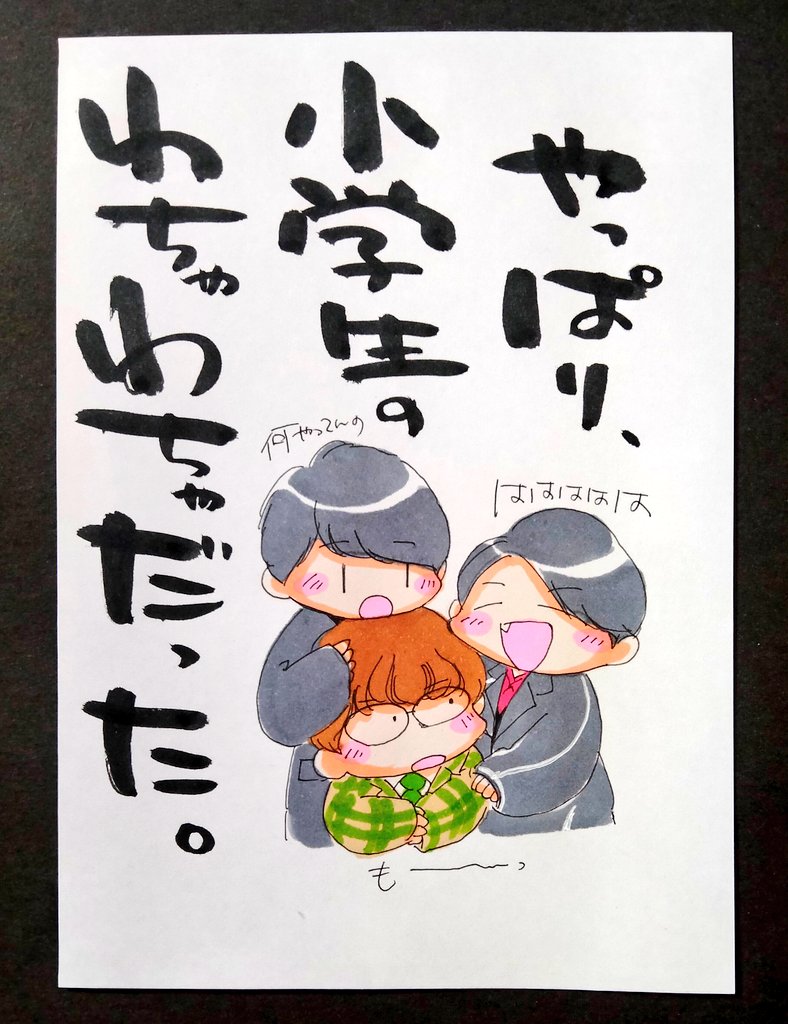 やっぱり、
小学生の
わちゃわちゃだった。
何やってんの
はははははは
も〜〜っ